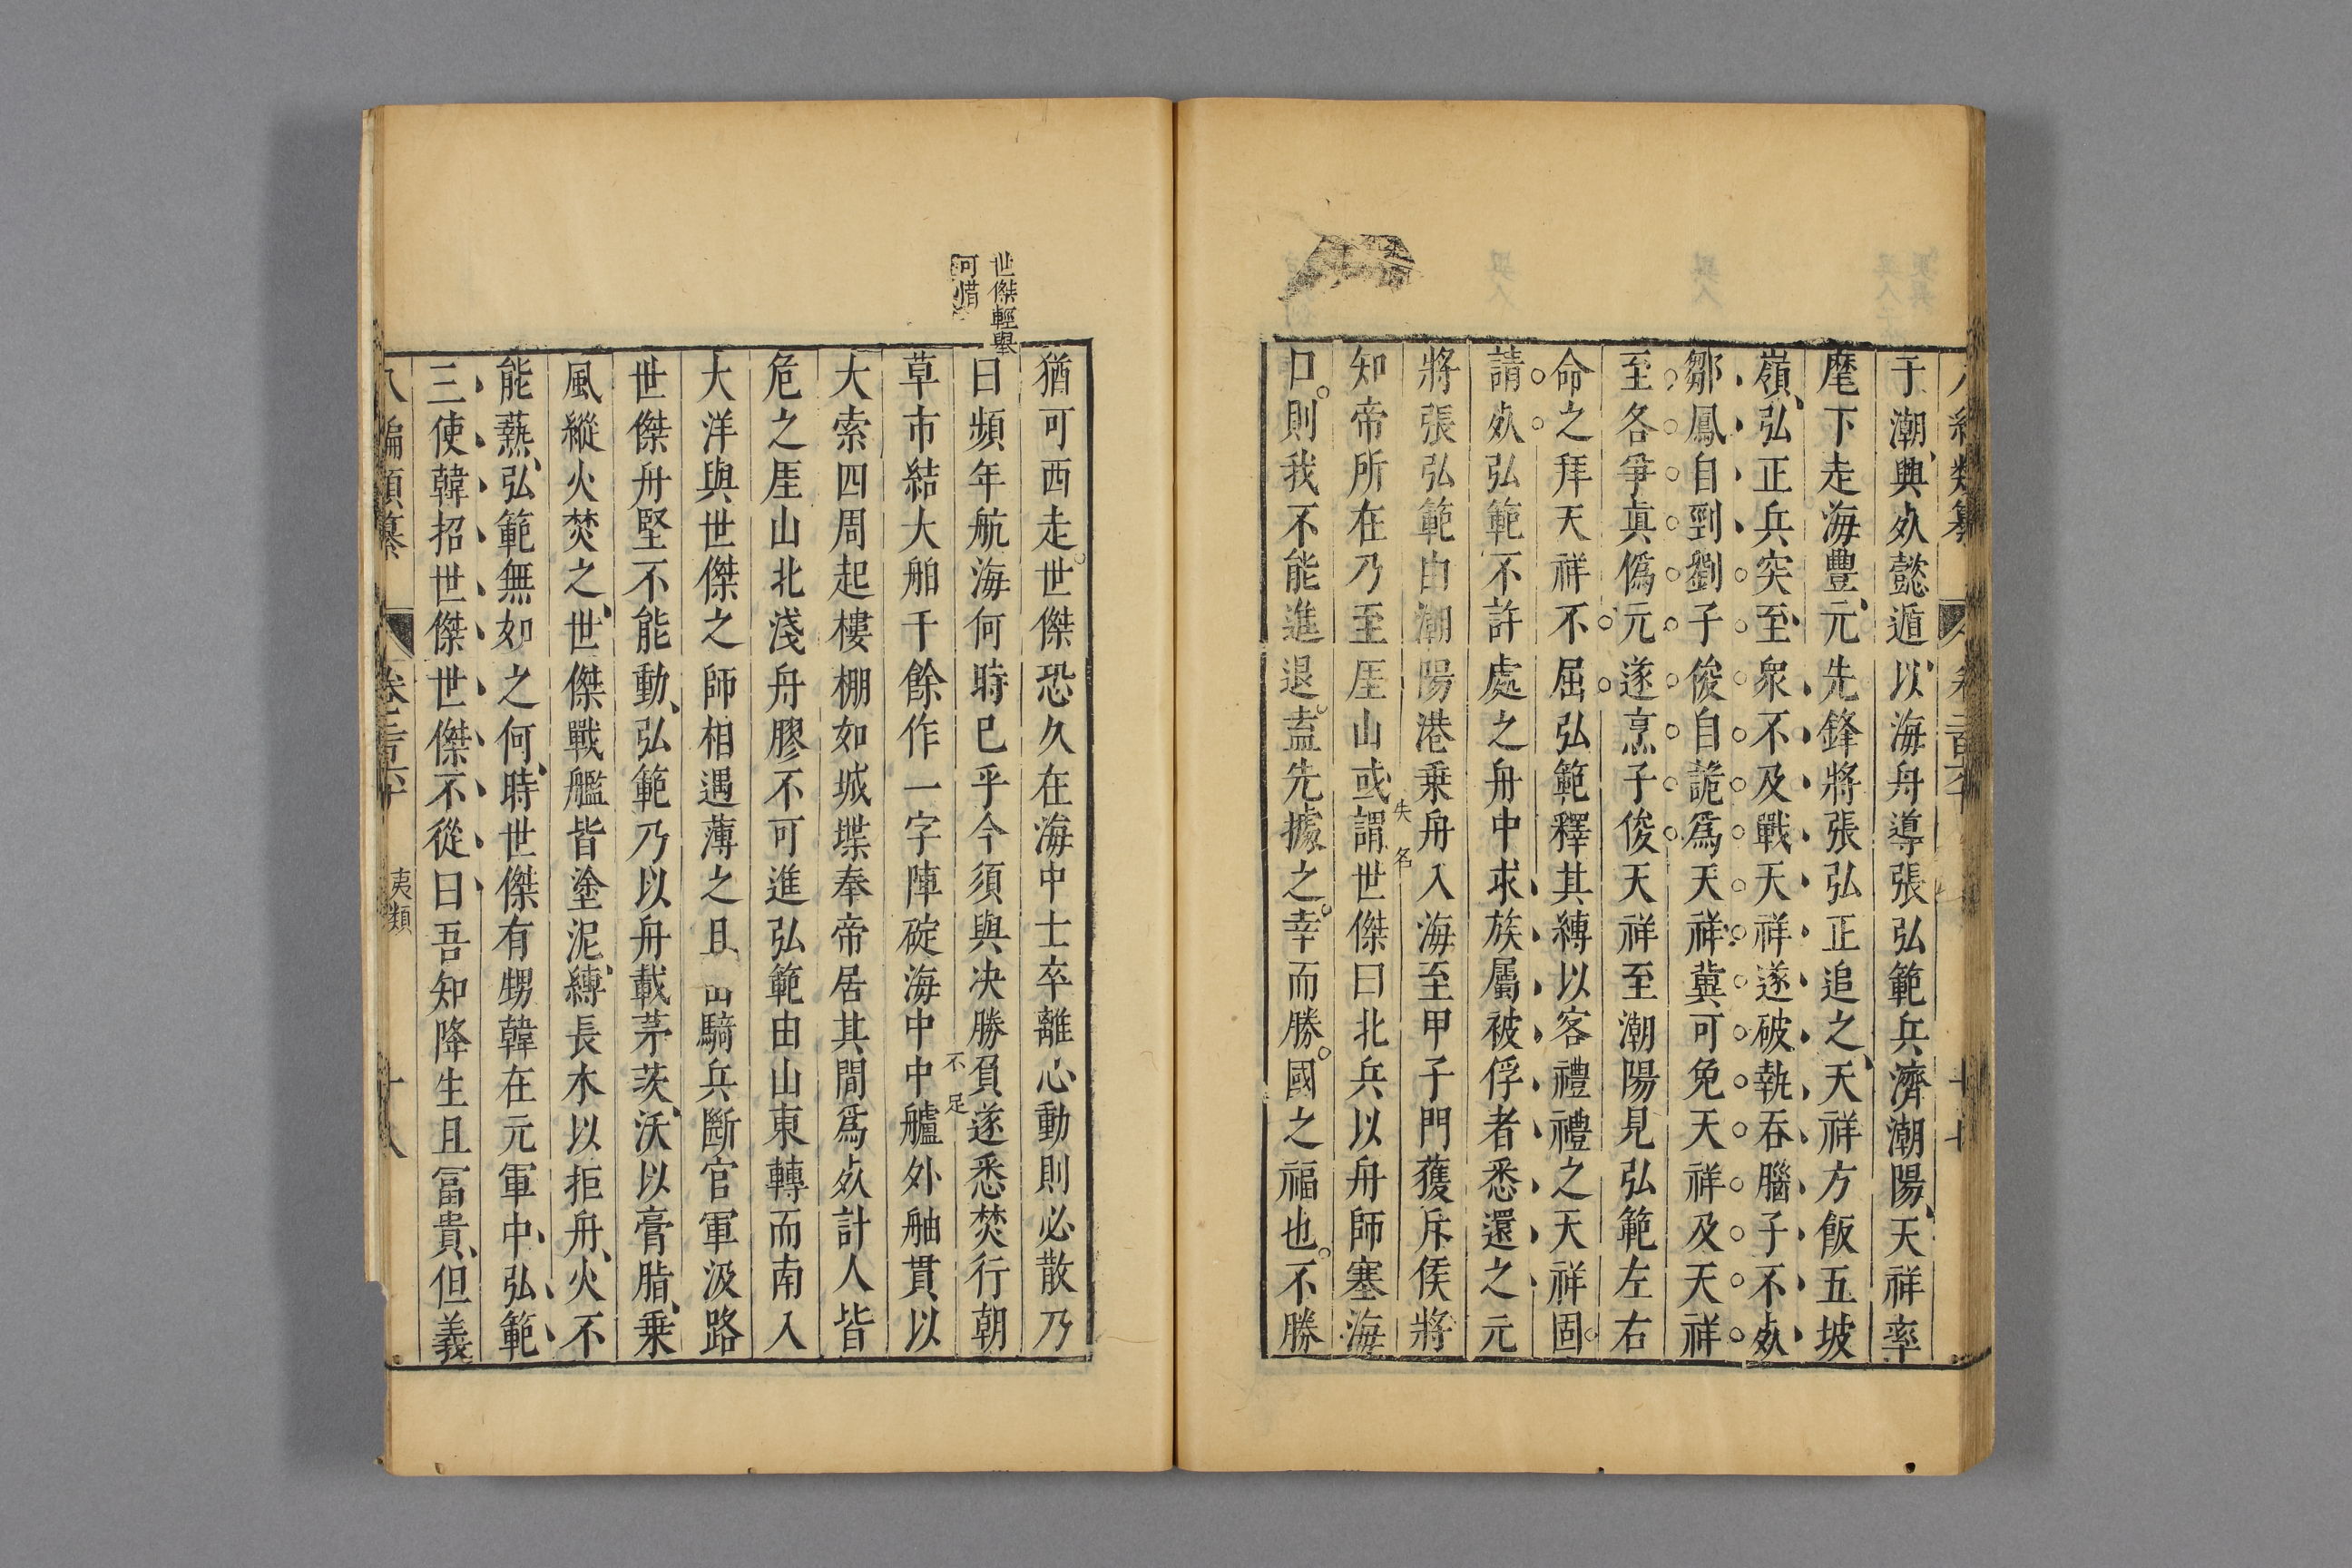 于潮、興歿懿遁、以海舟導張弘範兵濟潮陽、天祥率
麾下走海豐、元先鋒將張弘正追之、天祥方飯五坡
嶺、弘正兵突至、衆不及戰、天祥遂破執吞腦子、不歿
鄒鳳自剄劉子俊自詭爲天祥、冀可免天祥及天祥
至各爭真僞元遂烹子俊天祥至潮陽見弘範左右
命之拜天祥不屈弘範釋其縛以客禮禮之天祥固
請歿弘範不許處之舟中求族屬被俘者悉還之元
將張弘範由潮陽港乗舟入海至甲子門獲斥侯將
失名
知帝所在乃至厓山或謂世傑曰北兵以舟師塞海
口。則我不能進退。盍先據之。幸而勝。國之福也。不勝
世傑輕舉
可惜
猶可西走。世傑恐久在海中士卒離心動則必散乃
曰頻年航海何時已乎今須與决勝負遂悉焚行朝
不足
草市結大舶千餘作一字陣碇海中中艫外舳貫以
大索四周起樓棚如城堞奉帝居其間爲歿計人皆
危之厓山北淺舟膠不可進弘範由山東轉而南入
大洋與世傑之師相遇薄之且出騎兵斷官軍汲路
世傑舟堅不能動、弘範乃以舟載茅茨、沃以膏脂、乗
風縱火焚之、世傑戰艦皆塗泥、縛長木以拒舟、火不
能爇、弘範無如之何、時世傑有甥韓在元軍中、弘範
三使韓招世傑世傑不從曰吾知降生且富貴、但義
八編類纂
夷類
十八